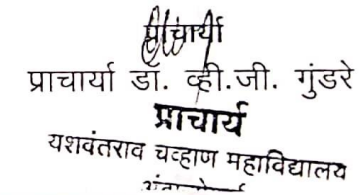 प्राचार्या
प्राचार्या डॉ. व्ही.जी. गुंडरे
प्राचार्य
यशवंतराव चव्हाण महाविद्यालय